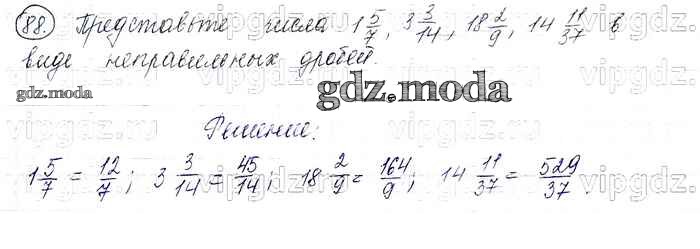 88. Представьте числа 1 5/7, 3 3/14, 18 2/9, 14 11/37 в
виде неправильных дробей.
gdz.moda
gdz.moda
Решение:
1 5/7 = 12/7; 3 3/14 = 45/14; 18 2/9 = 164/9; 14 11/37 = 529/37.